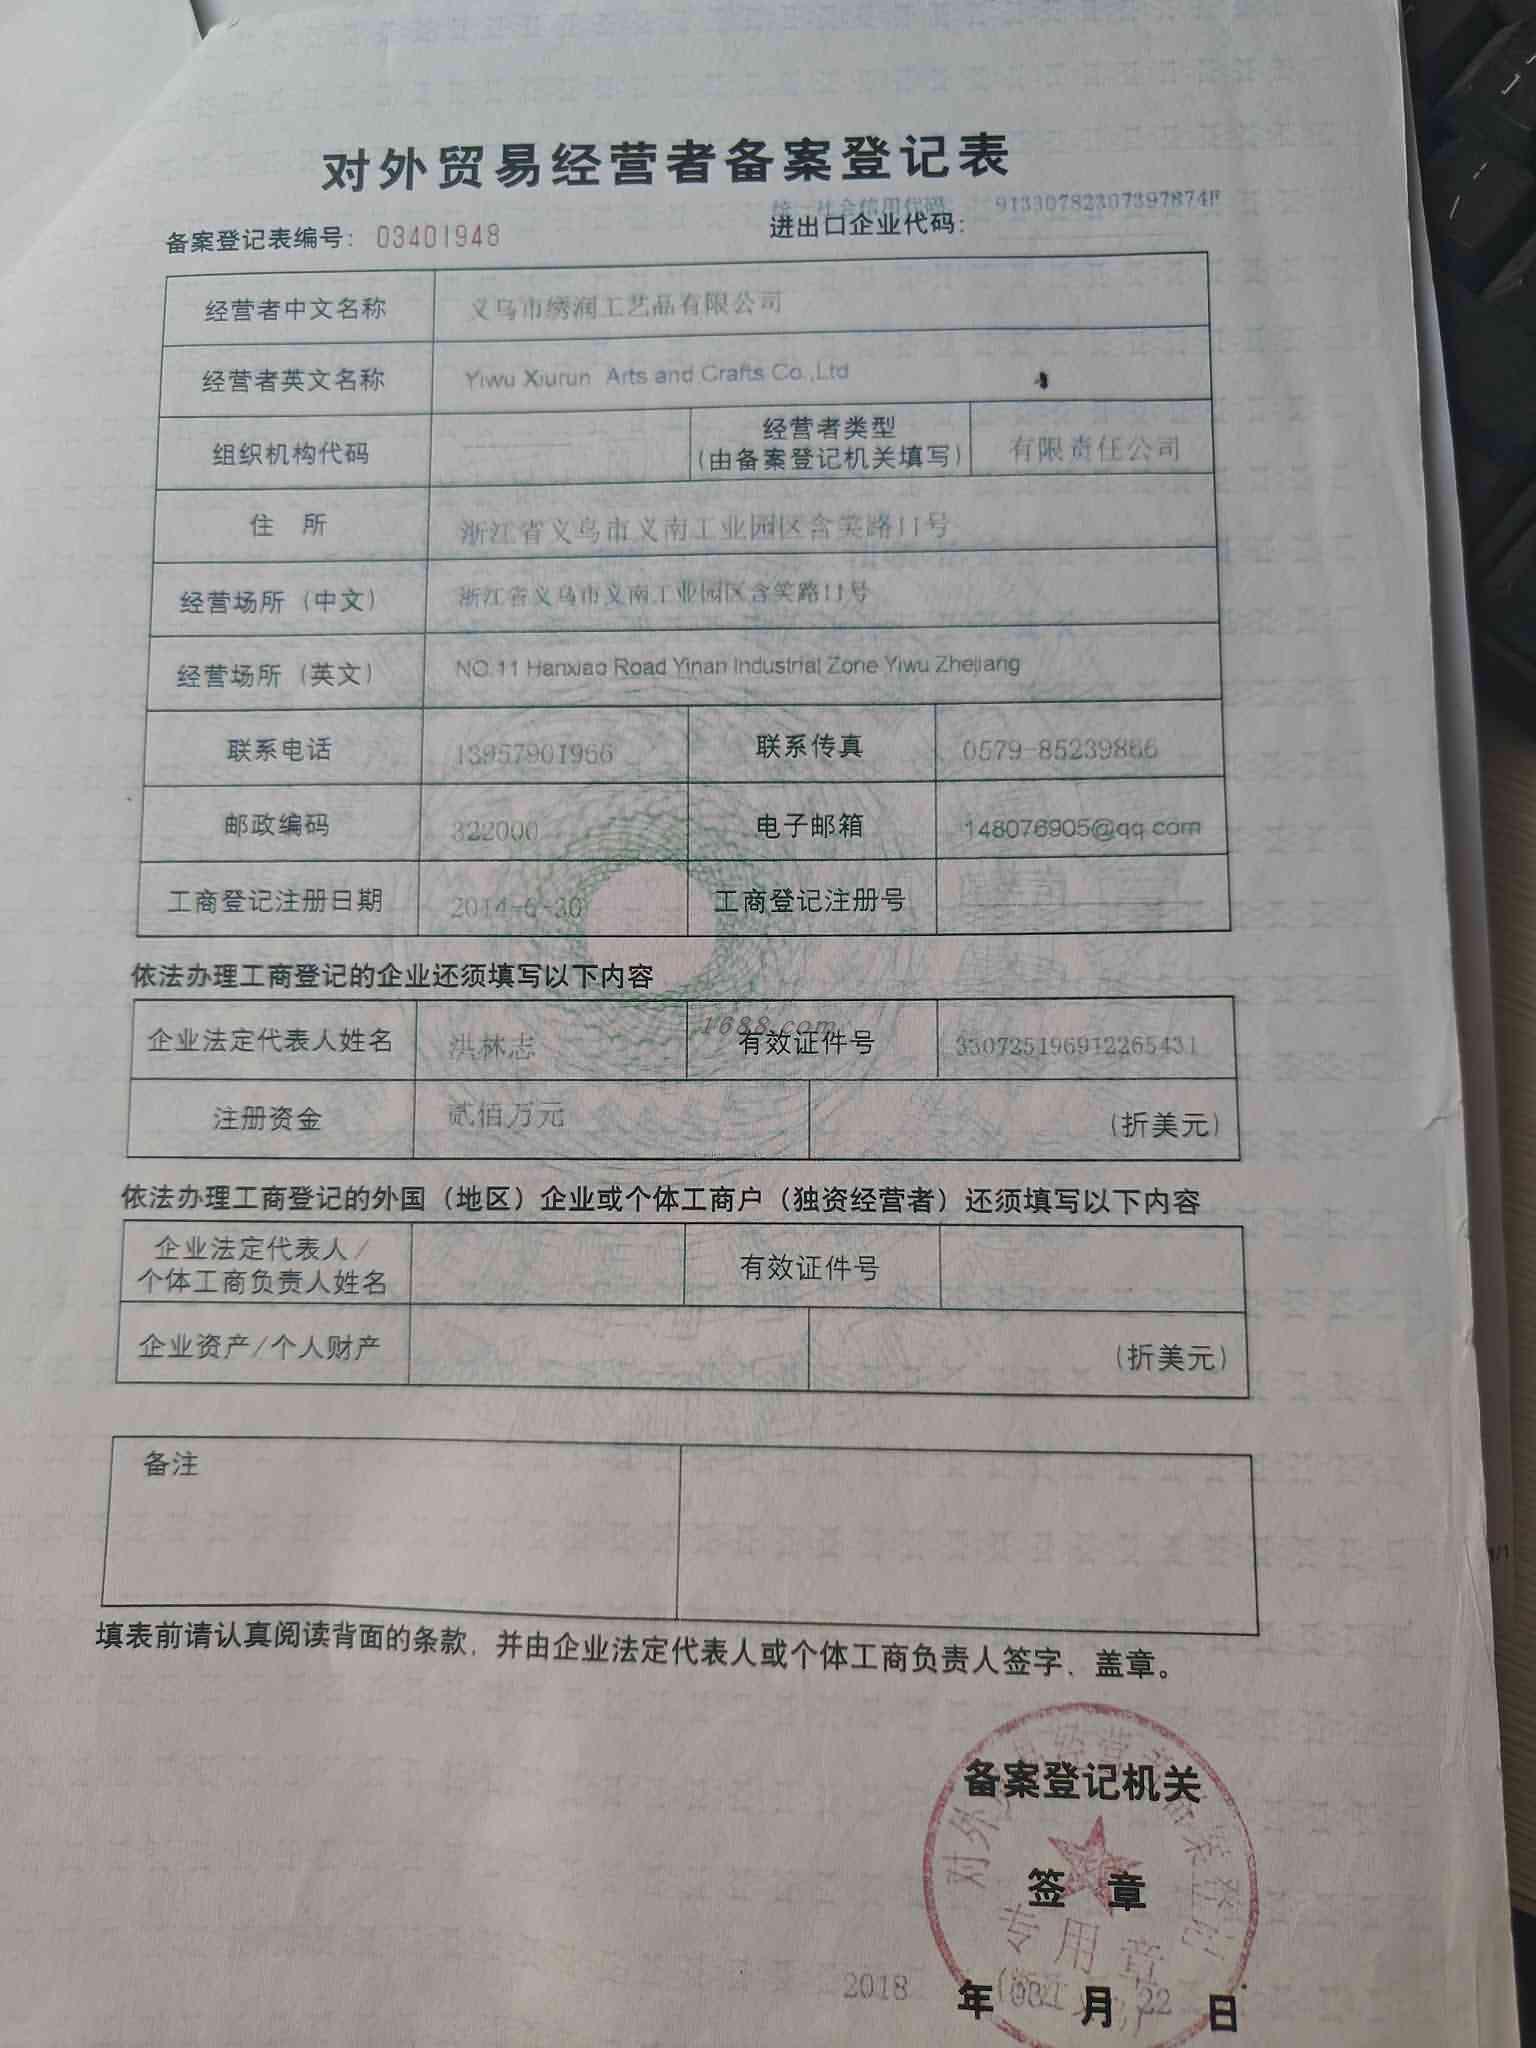 对外贸易经营者备案登记表
统一社会信用代码 91330782307397874F
备案登记表编号: 03401948 进出口企业代码:
经营者中文名称 义乌市绣润工艺品有限公司
经营者英文名称 Yiwu Xiurun Arts and Crafts Co.,Ltd
组织机构代码 经营者类型 (由备案登记机关填写) 有限责任公司
住 所 浙江省义乌市义南工业园区含笑路11号
经营场所 (中文) 浙江省义乌市义南工业园区含笑路11号
经营场所 (英文) NO.11 Hanxiao Road Yinan Industrial Zone Yiwu Zhejiang
联系电话 13957901966 联系传真 0579-85239866
邮政编码 322000 电子邮箱 148076905@qq.com
工商登记注册日期 2014-6-30 工商登记注册号
依法办理工商登记的企业还须填写以下内容
1688.com
企业法定代表人姓名 洪林志 有效证件号 330725196912265431
注册资金 贰佰万元 (折美元)
依法办理工商登记的外国(地区)企业或个体工商户(独资经营者)还须填写以下内容
企业法定代表人/
个体工商负责人姓名 有效证件号
企业资产/个人财产 (折美元)
备注
填表前请认真阅读背面的条款，并由企业法定代表人或个体工商负责人签字、盖章。
备案登记机关
签 章
专用章
2018 年 月 22 日